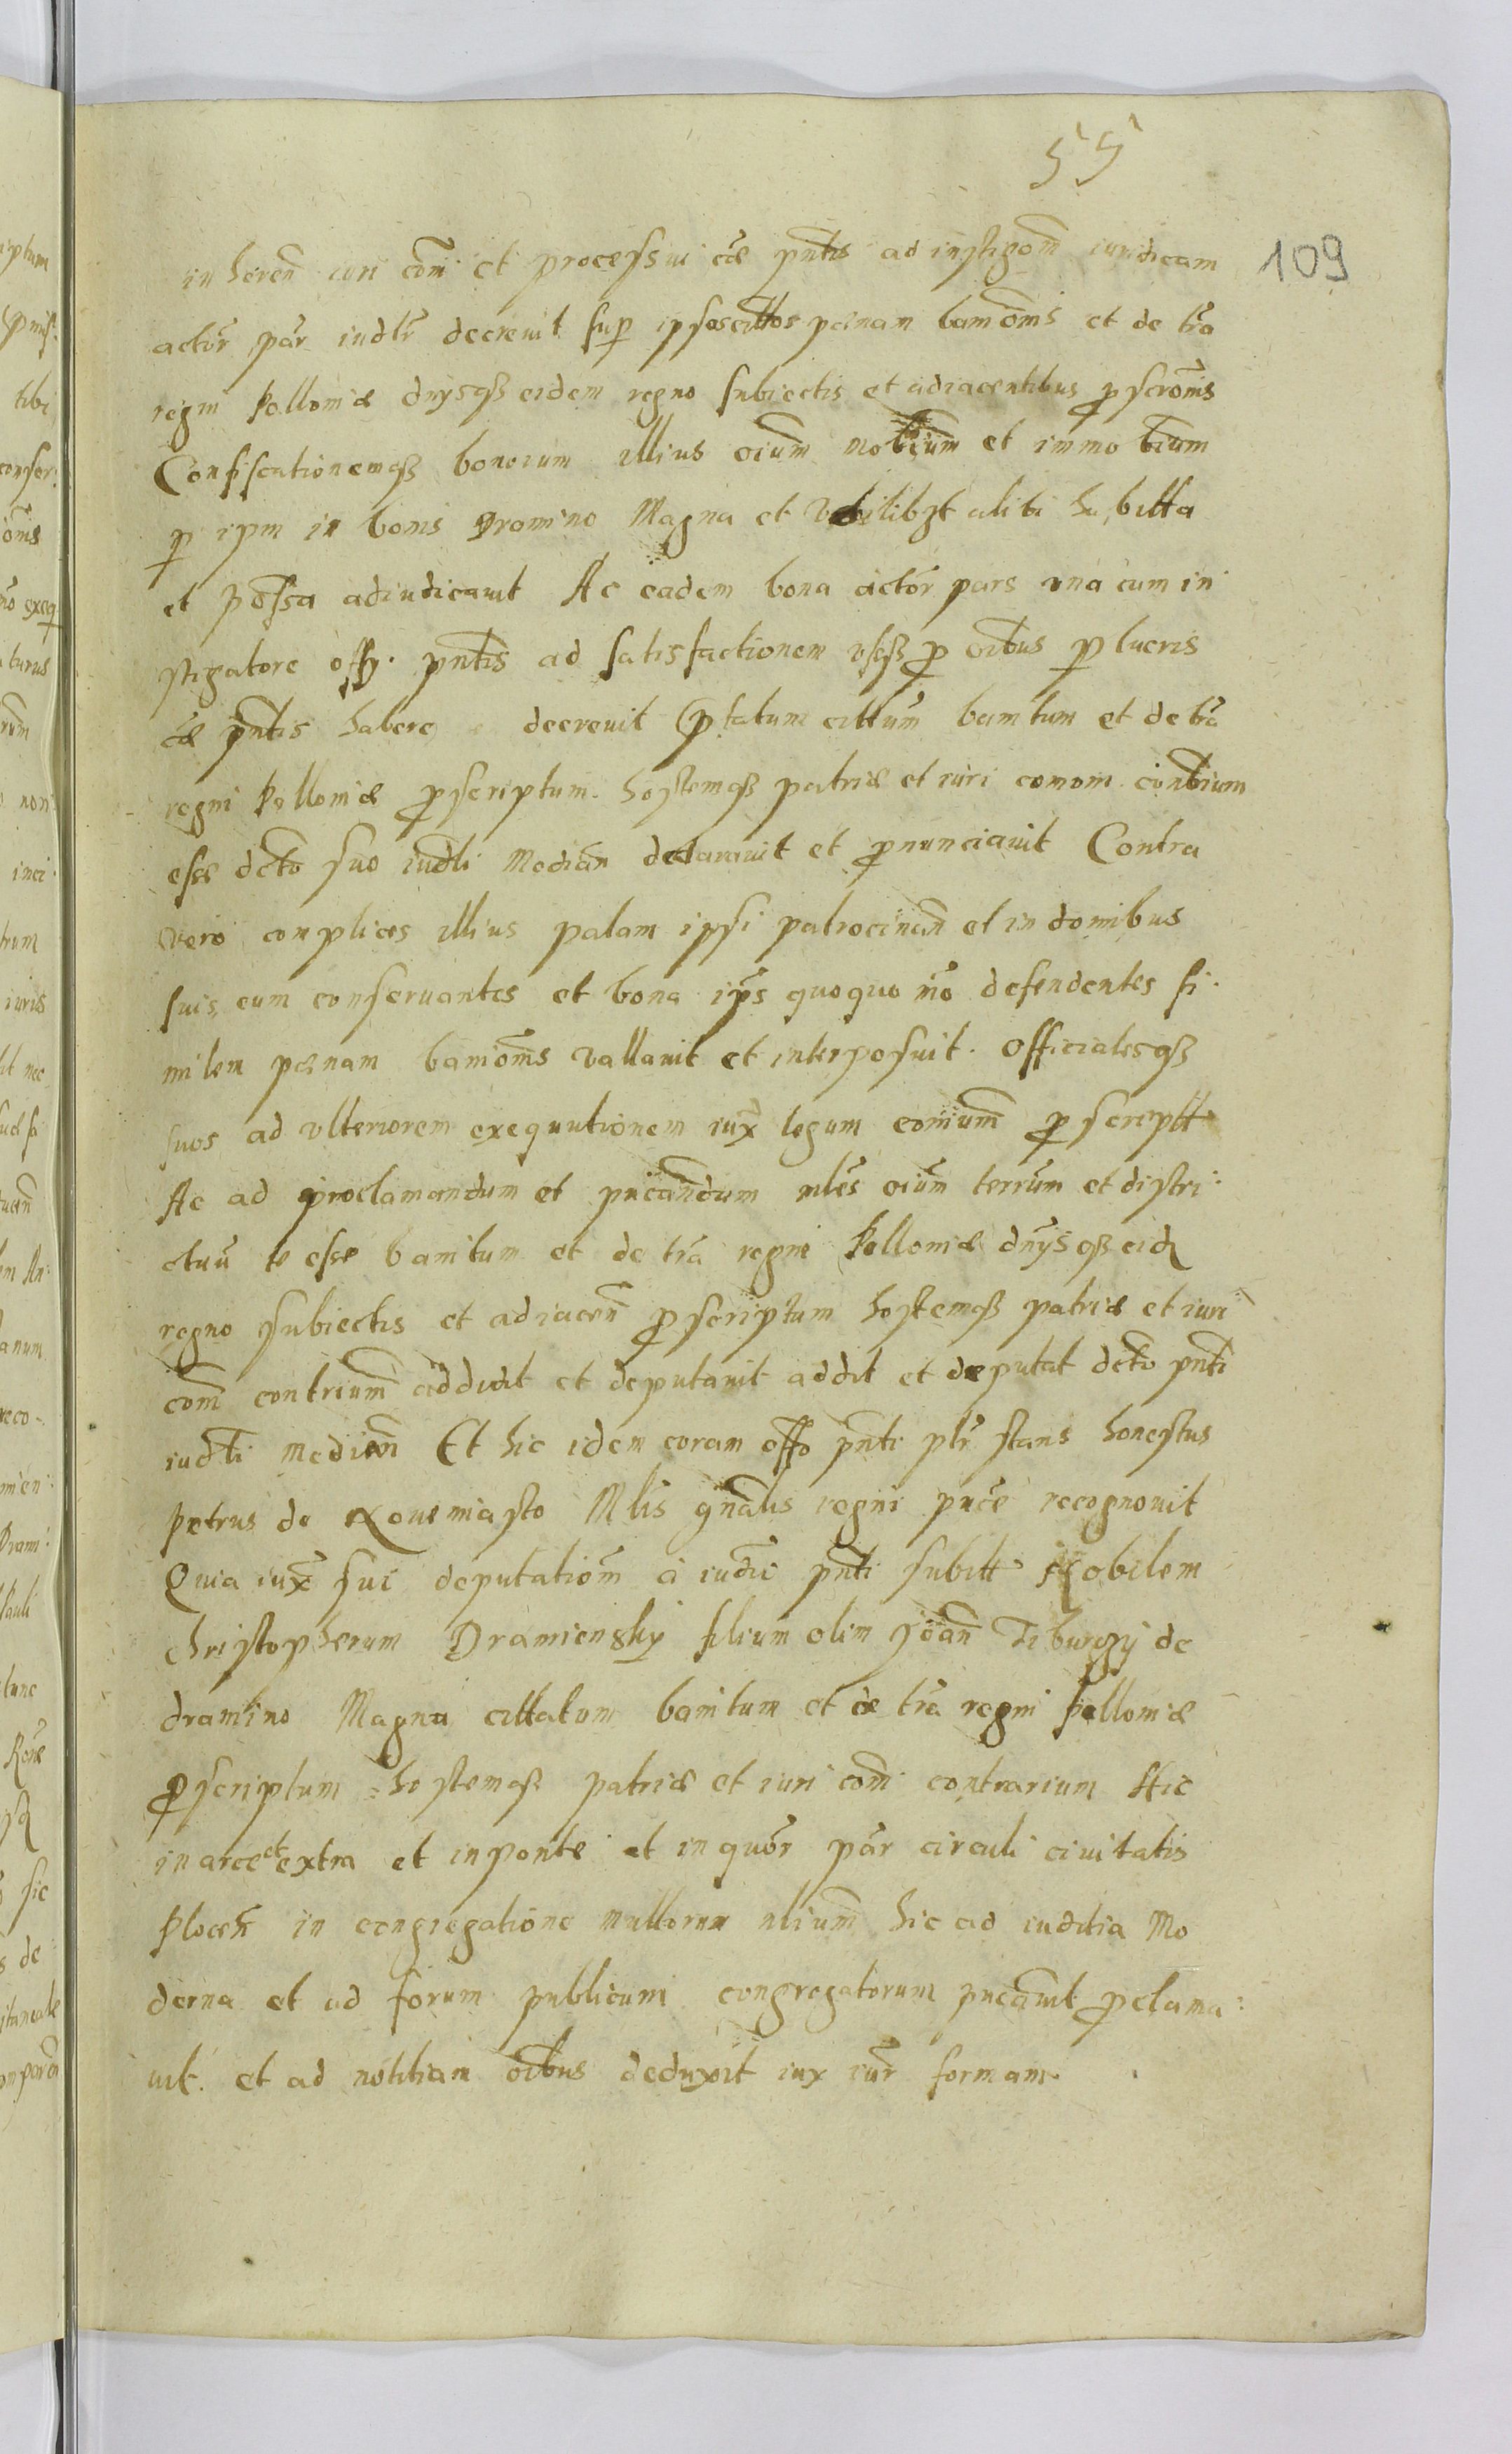 55
109
in heren̄ iuri com̄ et processui cæ pn̄tis ad instigaōm iuridicam
actōr par iudtr decrevit sup ipso cittos pænam bam̄oms et de tra
regni Pollonię dnysqȝ eidem regno subiectis et adiacentibus pscrōms
Confiscationemqȝ bonorum illius oium̄ mobium̄ et immobium
p ipm in bonis Dramino Magna et Vbilibȝt alibi habitta
et possa adiudicavit Ac eadem bona actōr pars una cum in
stigatore offy pn̄tis ad satisfactionem usqȝ p oibus p lucris
cæ pn̄tis habere decrevit Cptatum cittum̄ banitum et de tra
regni Pollonię pscriptum hostemqȝ patrię et iuri comoni contrium
esse dcto suo iudli Median̄ declaravit et pnunciavit Contra
vero conplices illius palam ipsi patrocinan̄ et in domibus
suis eum conservantes et bona ips̄ quoquo mō defendentes si
milem pænam banioms̄ vallavit et interposuit. Officialesqȝ
suos ad ulteriorem exequutionem iux legum comium̄ pscriptt
Ac ad proclamandum et pucandum nles oium̄ terrum̄ et distri
ctuū te esse banitum et de tra regni Pollonię dnysqȝ eid
regno subiectis et adiacen̄ pscriptum hostemqȝ patrię et iuri
com̄ contrium̄ addidit et deputavit addit et deputat dcto pn̄ti
iudli median̄ Et hic idem coram offo pn̄ti plr stans honestus
Petrus de Novemiasto Mlis gnalis regni puce recognovit
Quia iux sui deputatiom̄ a iudii pn̄ti subitt Nobilem
Christopherum Dramiensky filium olim Joan̄ Tiburczy de
dramino Magna cittatum banitum et de tra regni Pollonię
pscriptum hostemqȝ patrię et iuri com̄ contrarium Hic
in arce et extra et in ponte et in quor par circuli civitatis
Plocen̄ in congregatione multorum nlium̄ hic ad iuditia Mo
derna et ad forum publicum congregatorum pucavit pclama
vit. et ad notitiam oibus deduxit iux iur formam